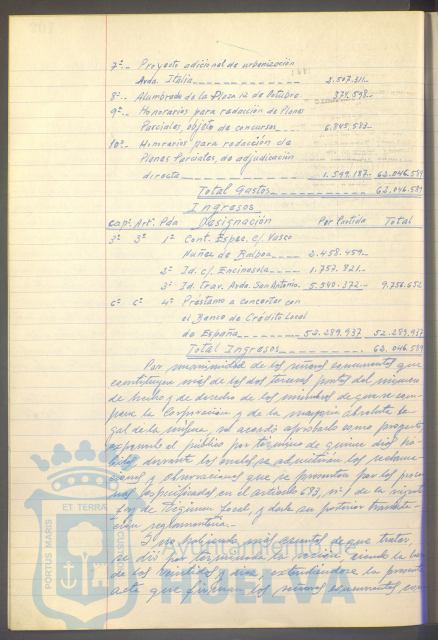 7º.- Proyecto adicional de urbanización
Avda. Italia 2.507.311.-
8º.- Alumbrado de la Plaza 12 de Octubre 374.598.-
9º.- Honorarios para redacción de Planes
Parciales objeto de concurso 6.845.583.-
10º.- Honorarios para redacción de
Planes Parciales, de adjudicación
directa 1.599.187.- 62.046.589
Total Gastos 62.046.589
Ingresos
Capº. Artº. Pda Designación Por Partida Total
3º 3º 1ª Cont. Espec. c/. Vasco
Nuñez de Balboa 2.458.459.-
2ª Id. c/. Encinasola 1.757.821.-
3ª Id. Trav. Avda. San Antonio. 5.540.372.- 9.756.652
6º 6º 4ª Préstamo a concertar con
el Banco de Crédito Local
de España 52.289.937 52.289.937
Total Ingresos 62.046.589
Por unanimidad de los señores asistentes que
constituyen más de las dos terceras partes del número
de hecho y de derecho de los miembros de que se com-
pone la Corporación y de la mayoría absoluta le-
gal de la misma, se acordó aprobarlo como proyecto,
exponerlo al público por término de quince días há-
biles, durante los cuales se admitirán las reclama-
ciones y observaciones que se presenten por las perso-
nas especificadas en el artículo 683, nº 1 de la vigente
Ley de Régimen Local, y darle su posterior tramita-
ción reglamentaria.-
Y no habiendo más asuntos de que tratar,
se dió por terminada la sesión, siendo la hora
de las veintidos y diez, extendiéndose la presente
acta que firman los señores asistentes con-
PORTUS MARIS
ET TERRA
CUSTODIO
Ayuntamiento de
HUELVA